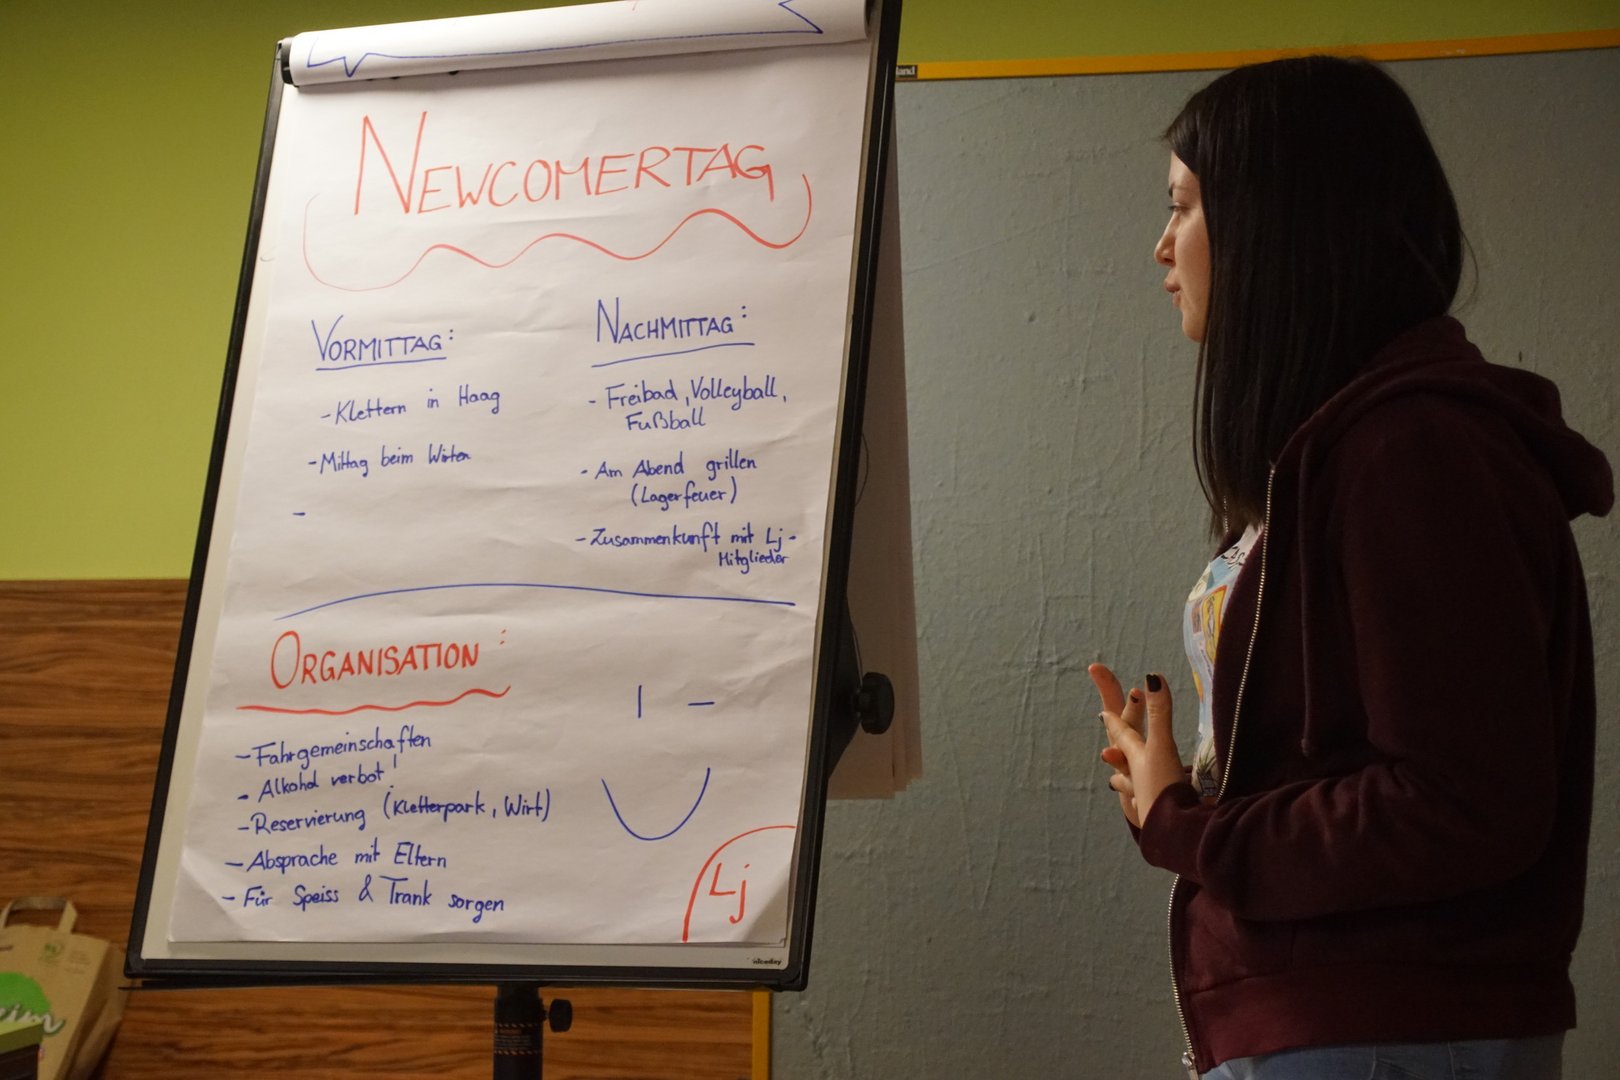 NEWCOMERTAG
VORMITTAG:
- Klettern in Haag
- Mittag beim Wirten
-
NACHMITTAG:
- Freibad, Volleyball,
Fußball
- Am Abend grillen
(Lagerfeuer)
- Zusammenkunft mit Lj-
Mitglieder
ORGANISATION:
- Fahrgemeinschaften
- Alkohol verbot!
- Reservierung (Kletterpark, Wirt)
- Absprache mit Eltern
- Für Speiss & Trank sorgen
Lj
niceday
land